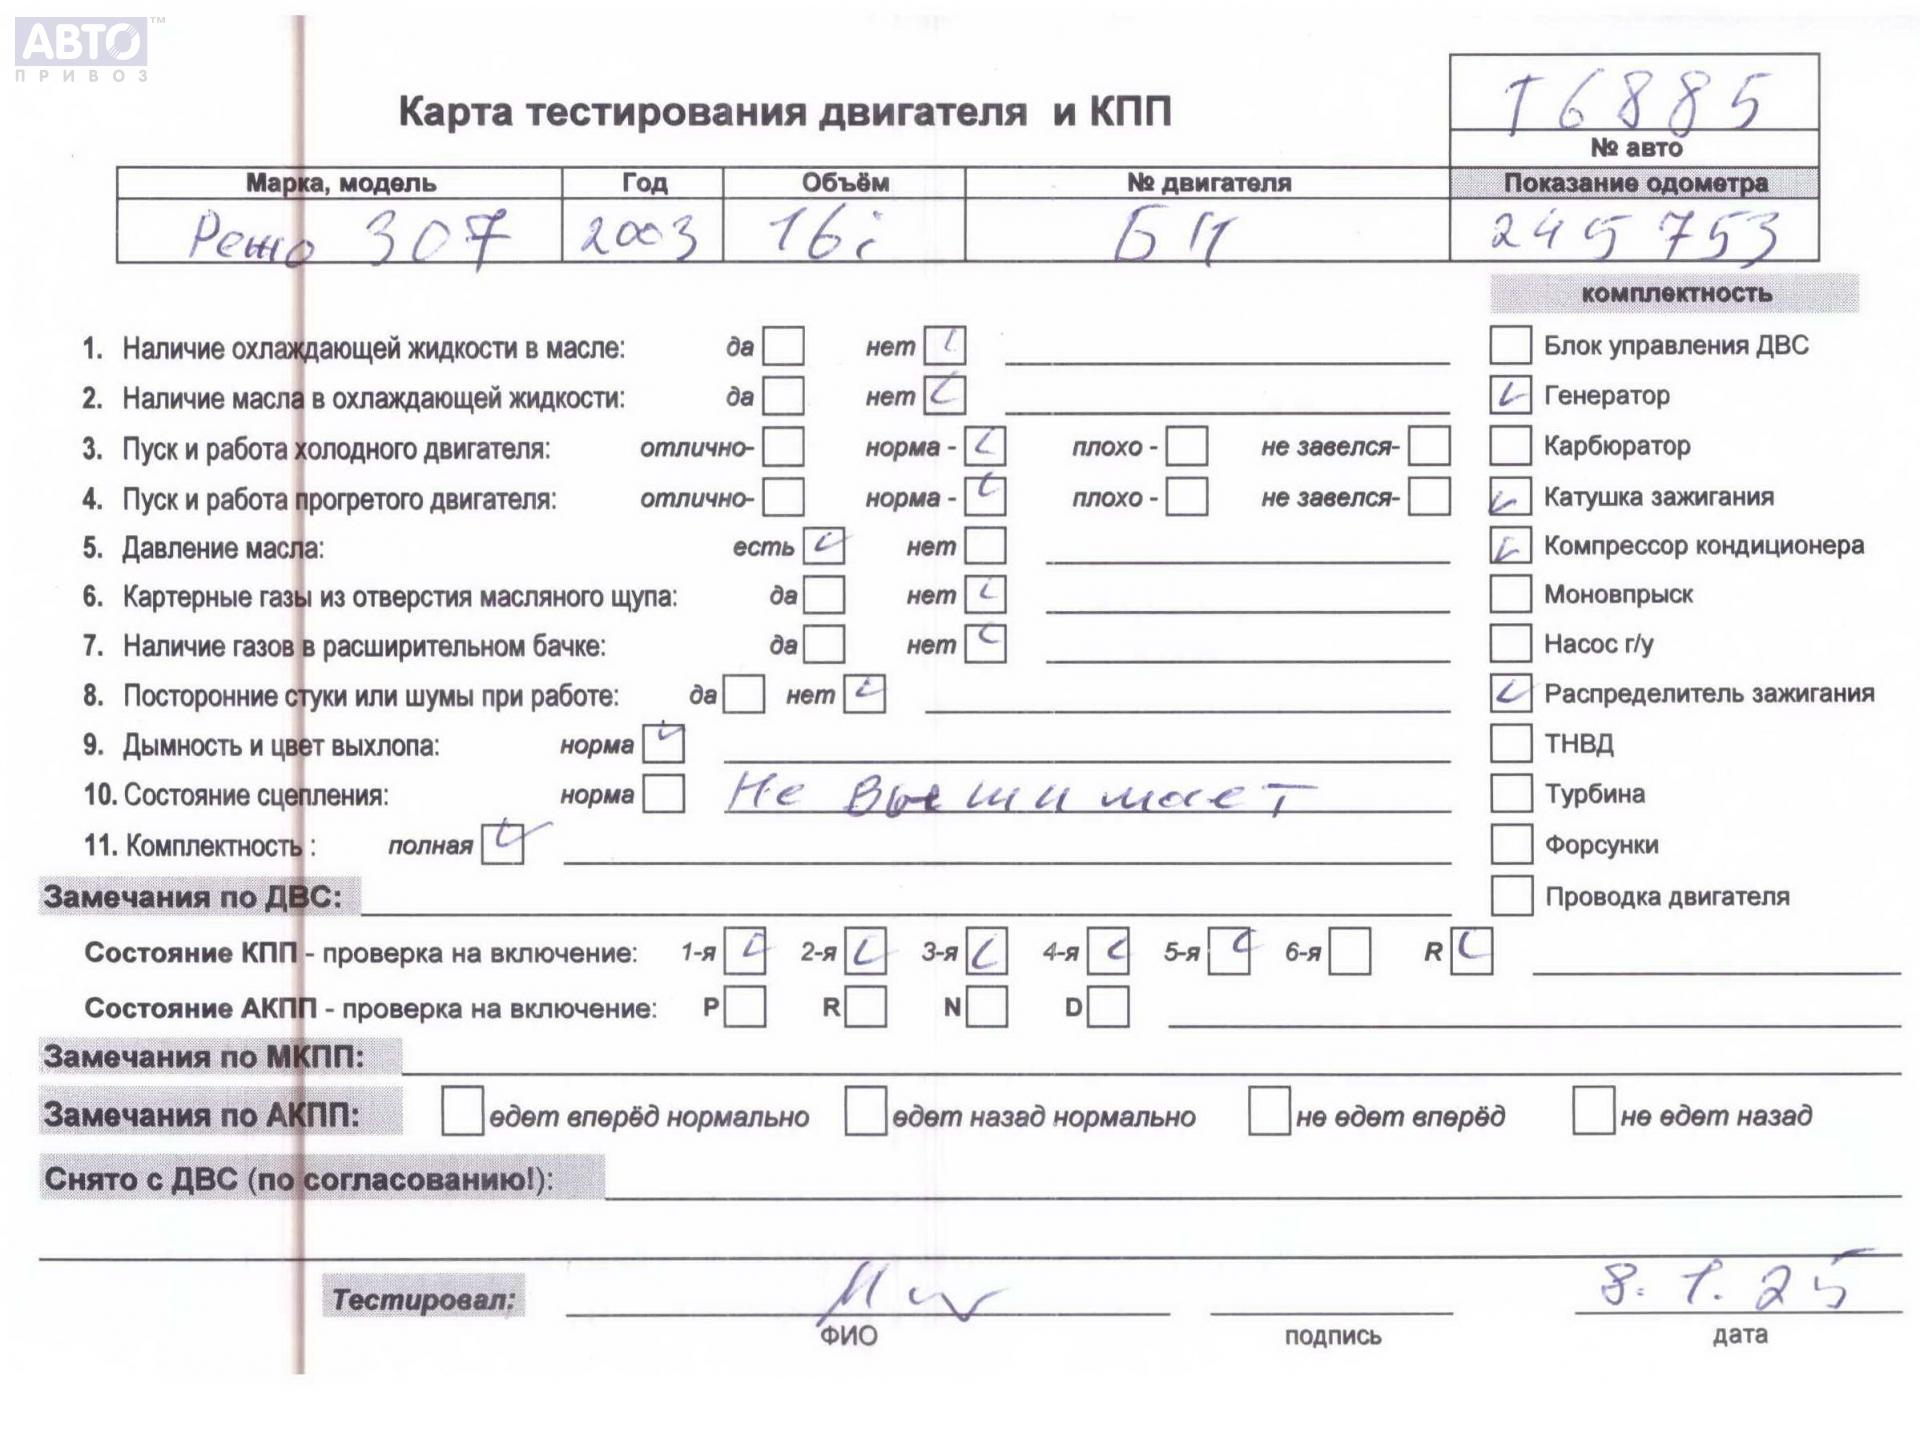 АВТО™
ПРИВОЗ
Карта тестирования двигателя и КПП
Т6885
№ авто
Марка, модель Год Объём № двигателя Показание одометра
Режо 307 2003 16i БН 245 753
комплектность
1. Наличие охлаждающей жидкости в масле: да нет Блок управления ДВС
2. Наличие масла в охлаждающей жидкости: да нет Генератор
3. Пуск и работа холодного двигателя: отлично- норма - плохо - не завелся- Карбюратор
4. Пуск и работа прогретого двигателя: отлично- норма - плохо - не завелся- Катушка зажигания
5. Давление масла: есть нет Компрессор кондиционера
6. Картерные газы из отверстия масляного щупа: да нет Моновпрыск
7. Наличие газов в расширительном бачке: да нет Насос г/у
8. Посторонние стуки или шумы при работе: да нет Распределитель зажигания
9. Дымность и цвет выхлопа: норма ТНВД
10. Состояние сцепления: норма Не Турбина
11. Комплектность : полная Форсунки
Замечания по ДВС: Проводка двигателя
Состояние КПП - проверка на включение: 1-я 2-я 3-я 4-я 5-я 6-я R
Состояние АКПП - проверка на включение: P R N D
Замечания по МКПП:
Замечания по АКПП: едет вперёд нормально едет назад нормально не едет вперёд не едет назад
Снято с ДВС (по согласованию!):
Тестировал: 8.1.25
ФИО подпись дата